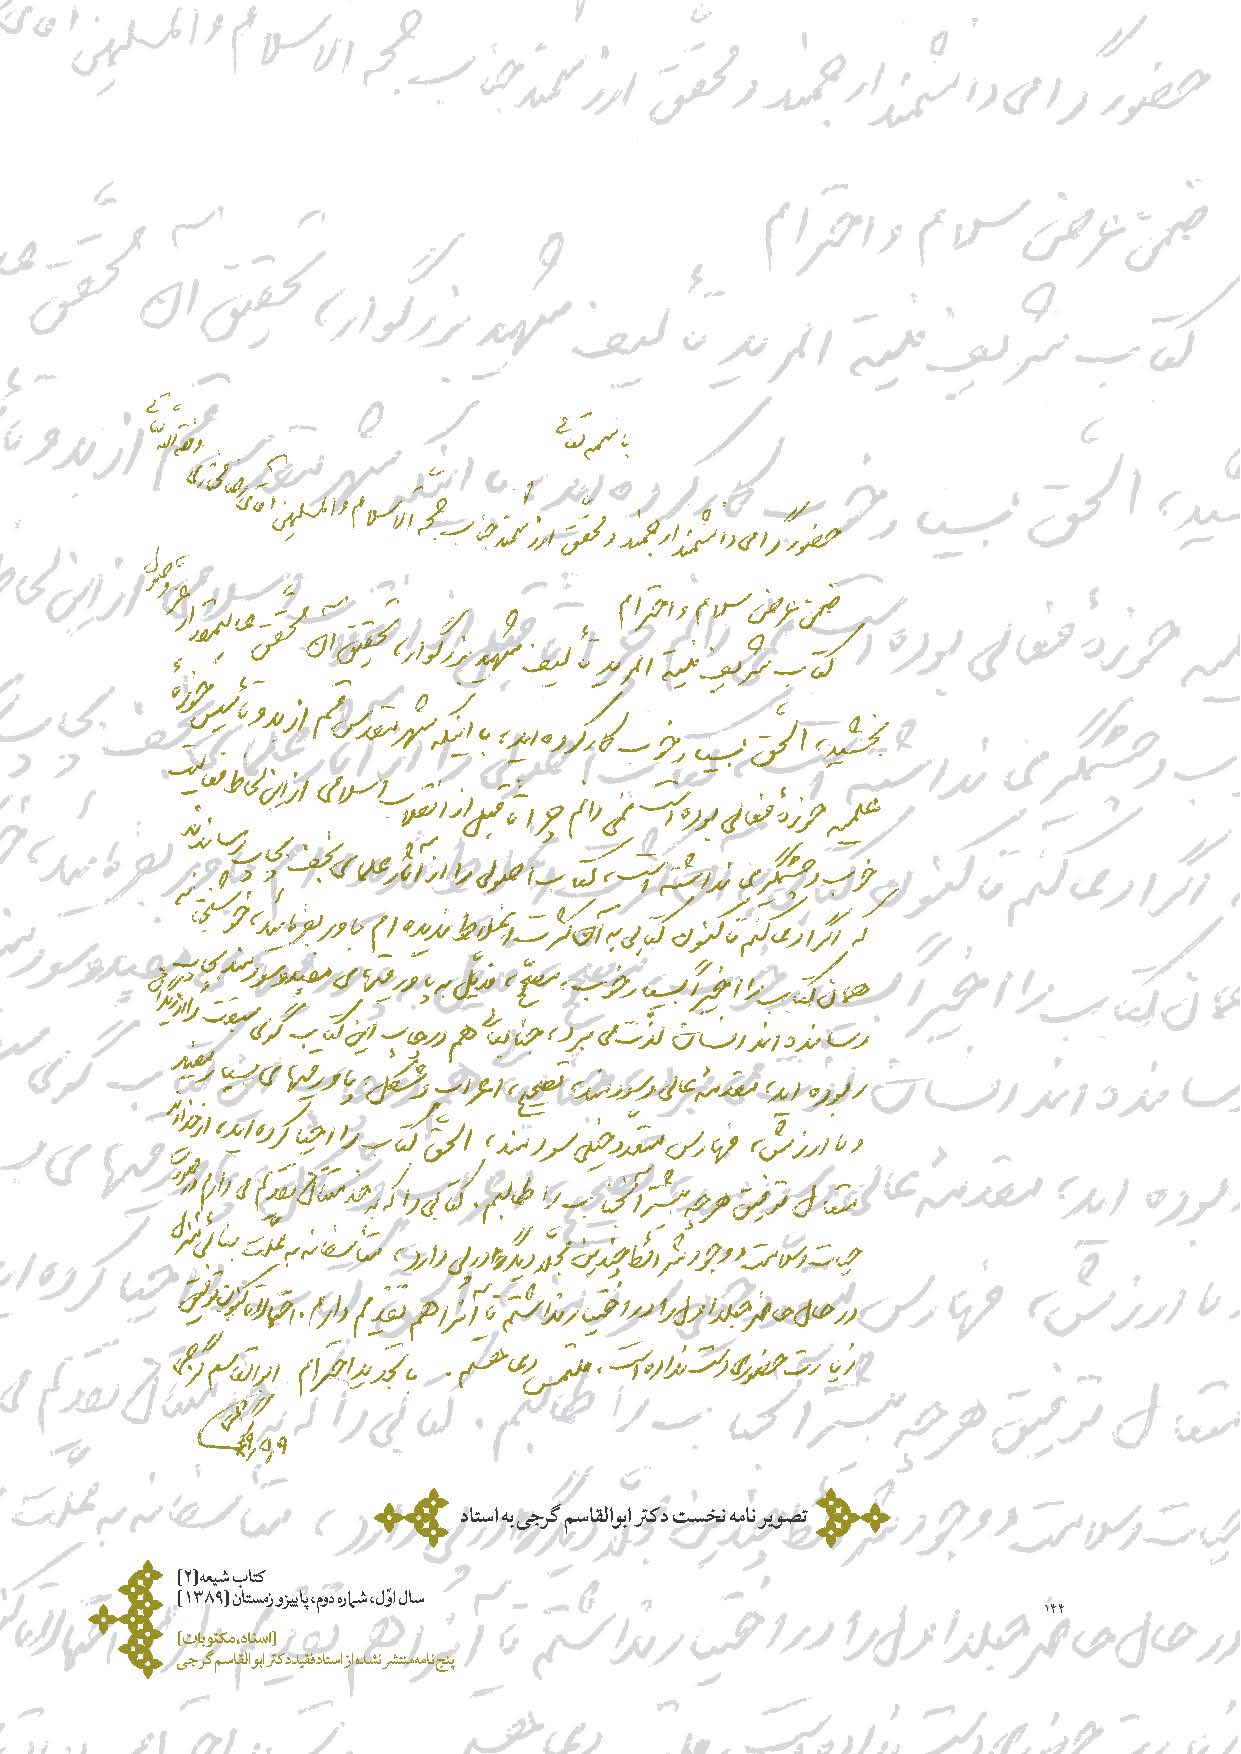 باسمه تعالی
حضور گرامی دانشمند ارجمند و محقق ارزشمند جناب حجة الاسلام والمسلمین آقای رضا مختاری وفقه الله تعالی
ضمن عرض سلام و احترام
کتاب شریف منیة المرید تألیف شهید بزرگوار، تحقیق آن محقق عالیقدر از
بخشید، الحق بسیار خوب کار کرده اید، با اینکه شهر مقدس قم از بدو تأسیس حوزهٔ
علمیه حوزهٔ فعالی بوده است نمی دانم چرا تا قبل از انقلاب اسلامی از این لحاظ فعالیت
خوب و چشمگیری نداشته است، کتاب اصولی را از آثار علمای نجف بچاپ رساندند
که اگر ادعا کنم تاکنون کتابی به آن کثرت اغلاط ندیده ام باور بفرمائید، خوشبختانه
همان کتاب را اخیراً بسیار خوب، مصحّح، مذیّل به پاورقیهای مفید و سودمند بچاپ
رسانده اند انسان لذت می برد، جنابعالی هم در چاپ این کتاب گوی سبقت را از دیگران
ربوده اید، مقدمهٔ عالی و سودمند، تصحیح، اعراب و شکل، پاورقیهای بسیار مفید
و با ارزش، فهارس متعدد خیلی سودمند، الحق کتاب را احیا کرده اید، از خداوند
متعال توفیق هرچه بیشتر آنجناب را طالبم. کتابی را که به خدمتتان تقدیم می دارم در صورت
حیات و سلامت و وجود شرائط چندین مجلّد دیگر در پی دارد، متأسفانه به علت بنائی منزل
در حال حاضر جلد اول را در اختیار نداشتم تا آنرا هم تقدیم دارم. احتمالاً تاکنون توفیق
زیارت حضوری دست نداده است، ملتمس دعا هستم. با تجدید احترام ابوالقاسم گرجی
تصویر نامه نخست دکتر ابوالقاسم گرجی به استاد
کتاب شیعه [۲]
سال اوّل، شماره دوم، پاییز و زمستان [۱۳۸۹]
۱۴۴
[اسناد، مکتوبات]
پنج نامه منتشر نشده از استاد فقید دکتر ابوالقاسم گرجی